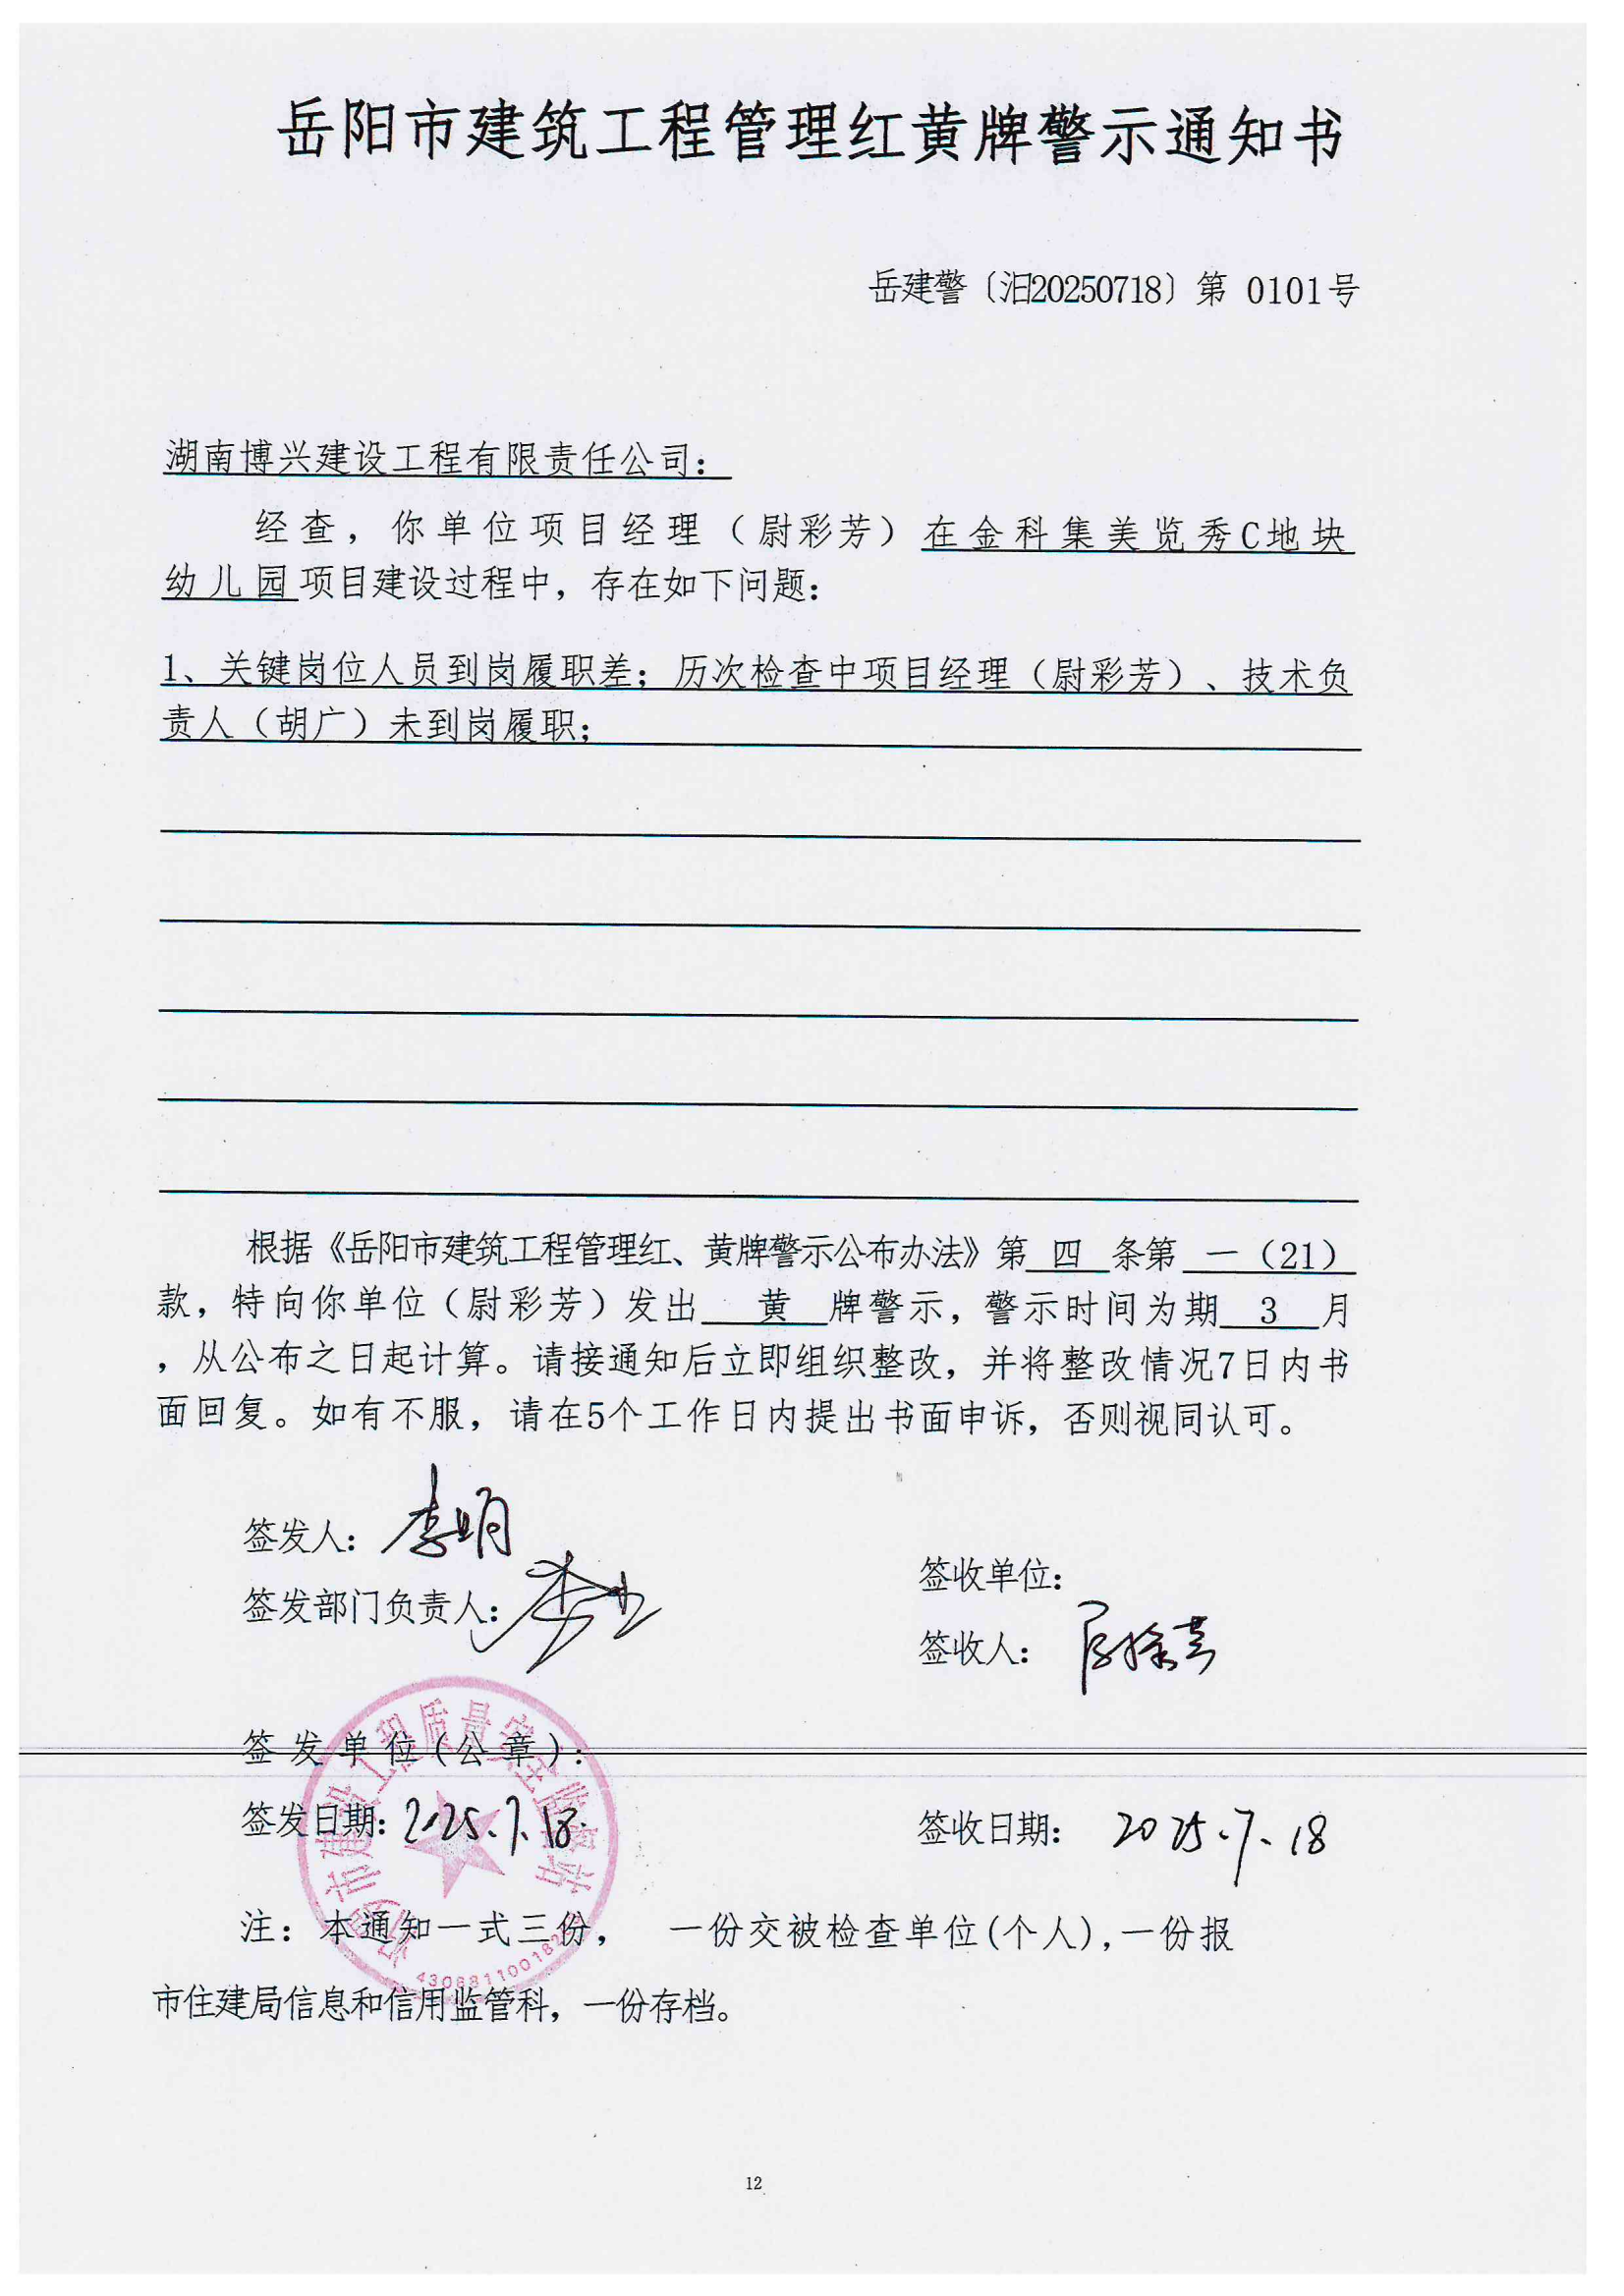 岳阳市建筑工程管理红黄牌警示通知书
岳建警〔汨20250718〕第 0101号
湖南博兴建设工程有限责任公司：
经查，你单位项目经理（尉彩芳）在金科集美览秀C地块
幼儿园项目建设过程中，存在如下问题：
1、关键岗位人员到岗履职差；历次检查中项目经理（尉彩芳）、技术负
责人（胡广）未到岗履职；
根据《岳阳市建筑工程管理红、黄牌警示公布办法》第 四 条第 一（21）
款，特向你单位（尉彩芳）发出 黄 牌警示，警示时间为期 3 月
，从公布之日起计算。请接通知后立即组织整改，并将整改情况7日内书
面回复。如有不服，请在5个工作日内提出书面申诉，否则视同认可。
签发人：李明
签发部门负责人：
签收单位：
签收人：
签发单位(公章)：
签发日期：2025.7.18.
签收日期： 2025.7.18
注：本通知一式三份， 一份交被检查单位(个人),一份报
市住建局信息和信用监管科，一份存档。
12